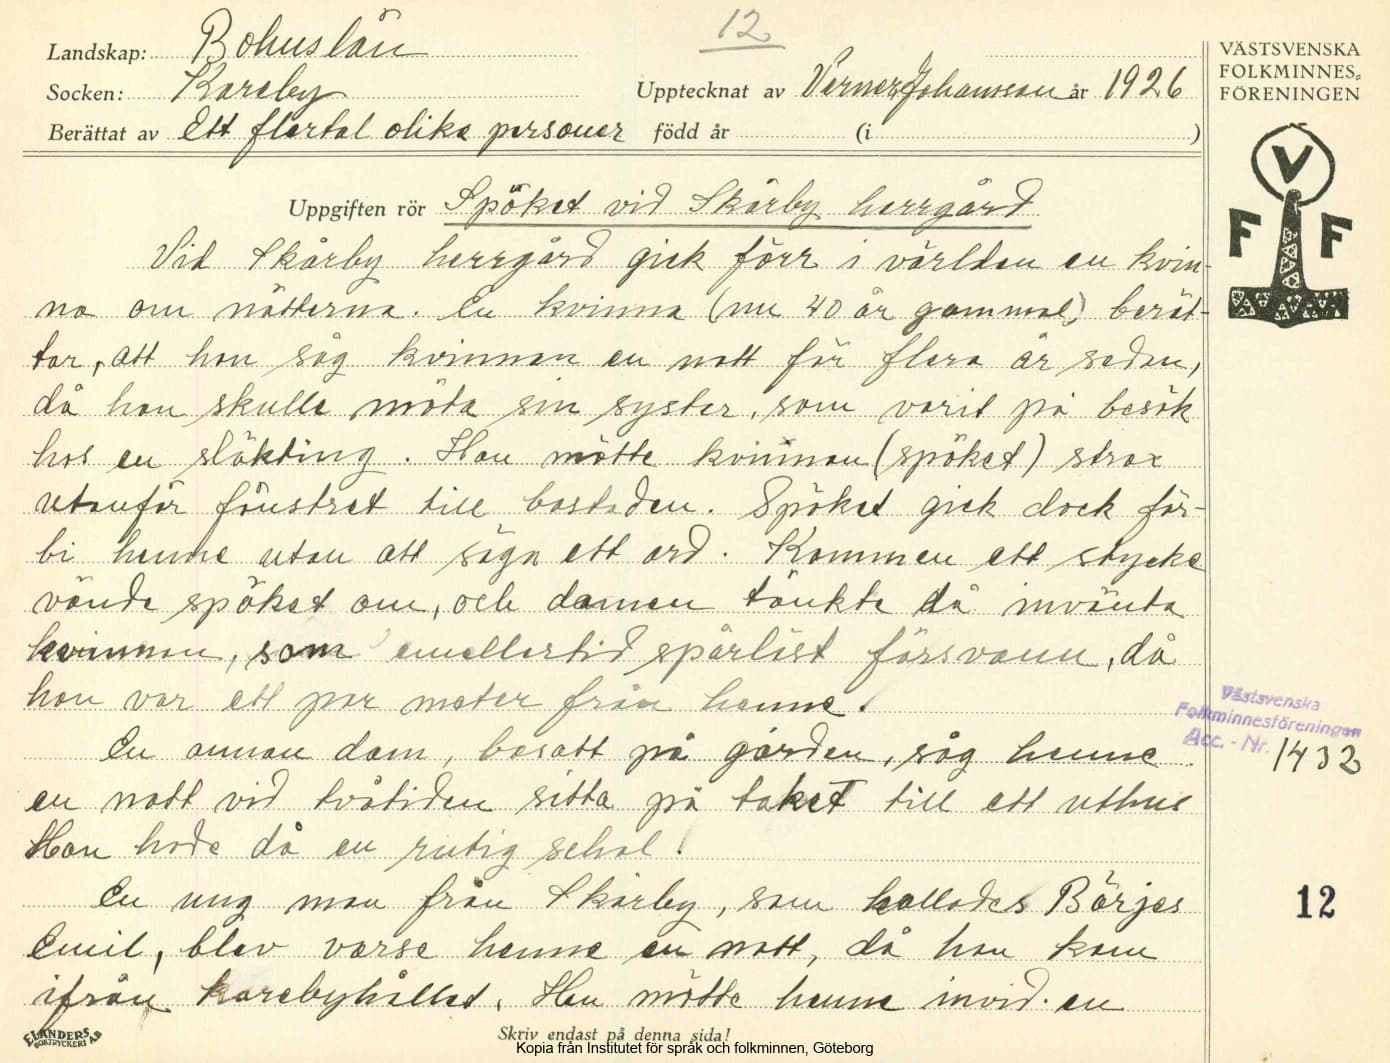 12
Landskap: Bohuslän
Socken: Kareby
Upptecknat av Verner Johansson år 1926
Berättat av Ett flertal olika personer född år (i )
VÄSTSVENSKA
FOLKMINNES-
FÖRENINGEN
V
F F
Uppgiften rör Spöket vid Skårby herrgård
Vid Skårby herrgård gick förr i världen en kvin-
na om nätterna. En kvinna (nu 40 år gammal) berät-
tar, att hon såg kvinnan en natt för flera år sedan,
då hon skulle möta sin syster, som varit på besök
hos en släkting. Hon mötte kvinnan (spöket) strax
utanför fönstret till bostaden. Spöket gick dock för-
bi henne utan att säga ett ord. Kommen ett stycke
vände spöket om, och damen tänkte då invänta
kvinnan, som emellertid spårlöst försvann, då
hon var ett par meter från henne.
En annan dam, bosatt på gården, såg henne
en natt vid tvåtiden sitta på taket till ett uthus
Hon hade då en rutig schal.
En ung man från Skårby, som kallades Börjes
Emil, blev varse henne en natt, då han kom
ifrån karebyhållet. Han mötte henne invid en
Västsvenska
Folkminnesföreningen
Acc. - Nr. 1432
12
ELANDERS
BOKTRYCKERI A.B
Skriv endast på denna sida!
Kopia från Institutet för språk och folkminnen, Göteborg